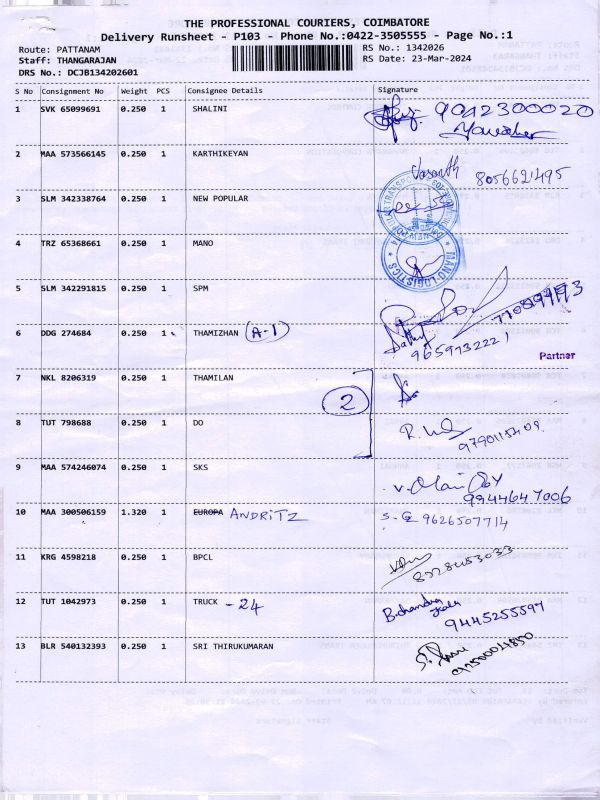 THE PROFESSIONAL COURIERS, COIMBATORE
Delivery Runsheet - P103 - Phone No.:0422-3505555 - Page No.:1
Route: PATTANAM RS No.: 1342026
Staff: THANGARAJAN RS Date: 23-Mar-2024
DRS No.: DCJB134202601
S No Consignment No Weight PCS Consignee Details Signature
1 SVK 65099691 0.250 1 SHALINI 9042300020
2 MAA 573566145 0.250 1 KARTHIKEYAN Vasanth 8056621495
3 SLM 342338764 0.250 1 NEW POPULAR
4 TRZ 65368661 0.250 1 MANO MANO LOGISTICS
5 SLM 342291815 0.250 1 SPM
6 DDG 274684 0.250 1 THAMIZHAN (A-1) 9659732221
Partner
7 NKL 8206319 0.250 1 THAMILAN
2
8 TUT 798688 0.250 1 DO
9 MAA 574246074 0.250 1 SKS 9944647006
10 MAA 300506159 1.320 1 EUROPA ANDRITZ 9626507714
11 KRG 4598218 0.250 1 BPCL
12 TUT 1042973 0.250 1 TRUCK - 24 B.chandra 9445255597
13 BLR 540132393 0.250 1 SRI THIRUKUMARAN